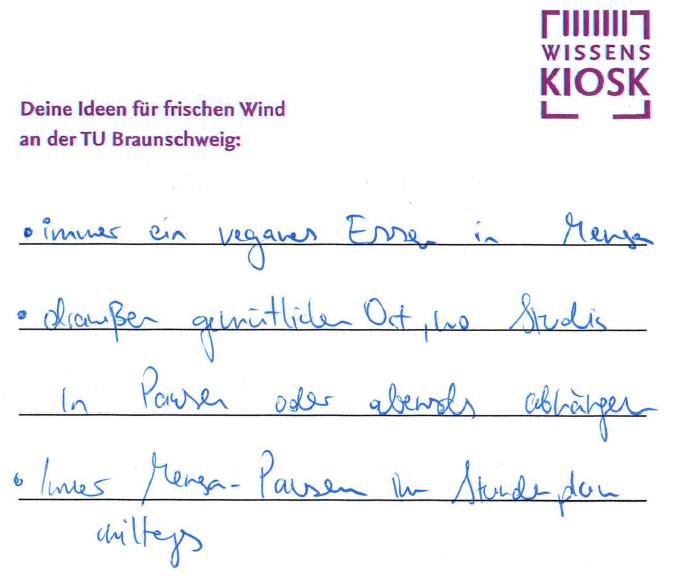 WISSENS
KIOSK
Deine Ideen für frischen Wind
an der TU Braunschweig:
• immer ein veganes Essen in Mensa
• draußen gemütlichen Ort, wo Studis
in Pausen oder abends abhängen
• Immer Mensa-Pausen im
mittags